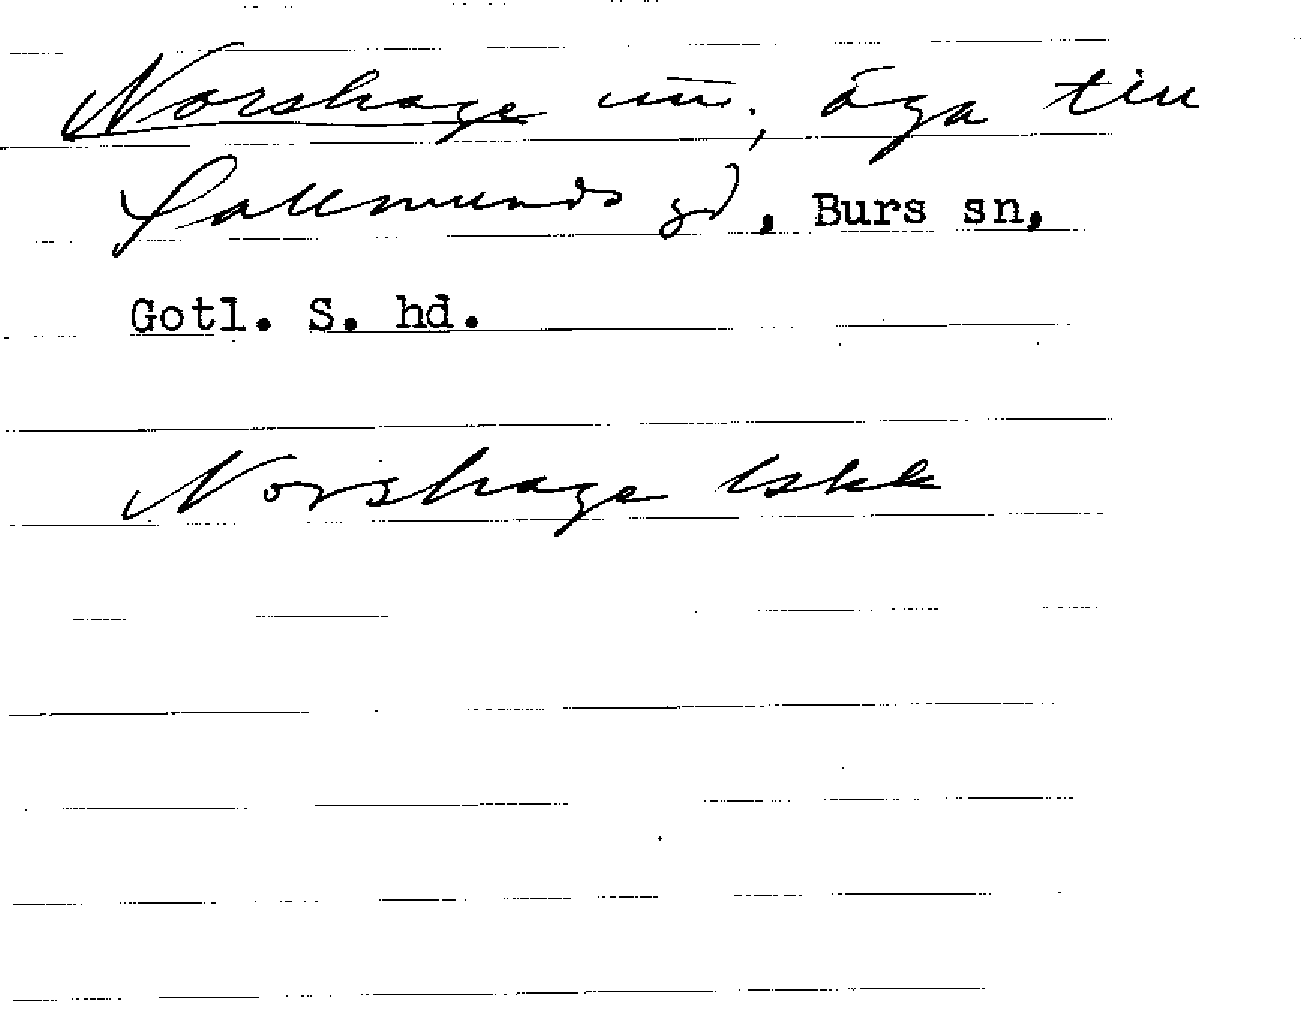 Norshage un., äga till
Sallmunds gd, Burs sn,
Gotl. S. hd.
Norshage lskk